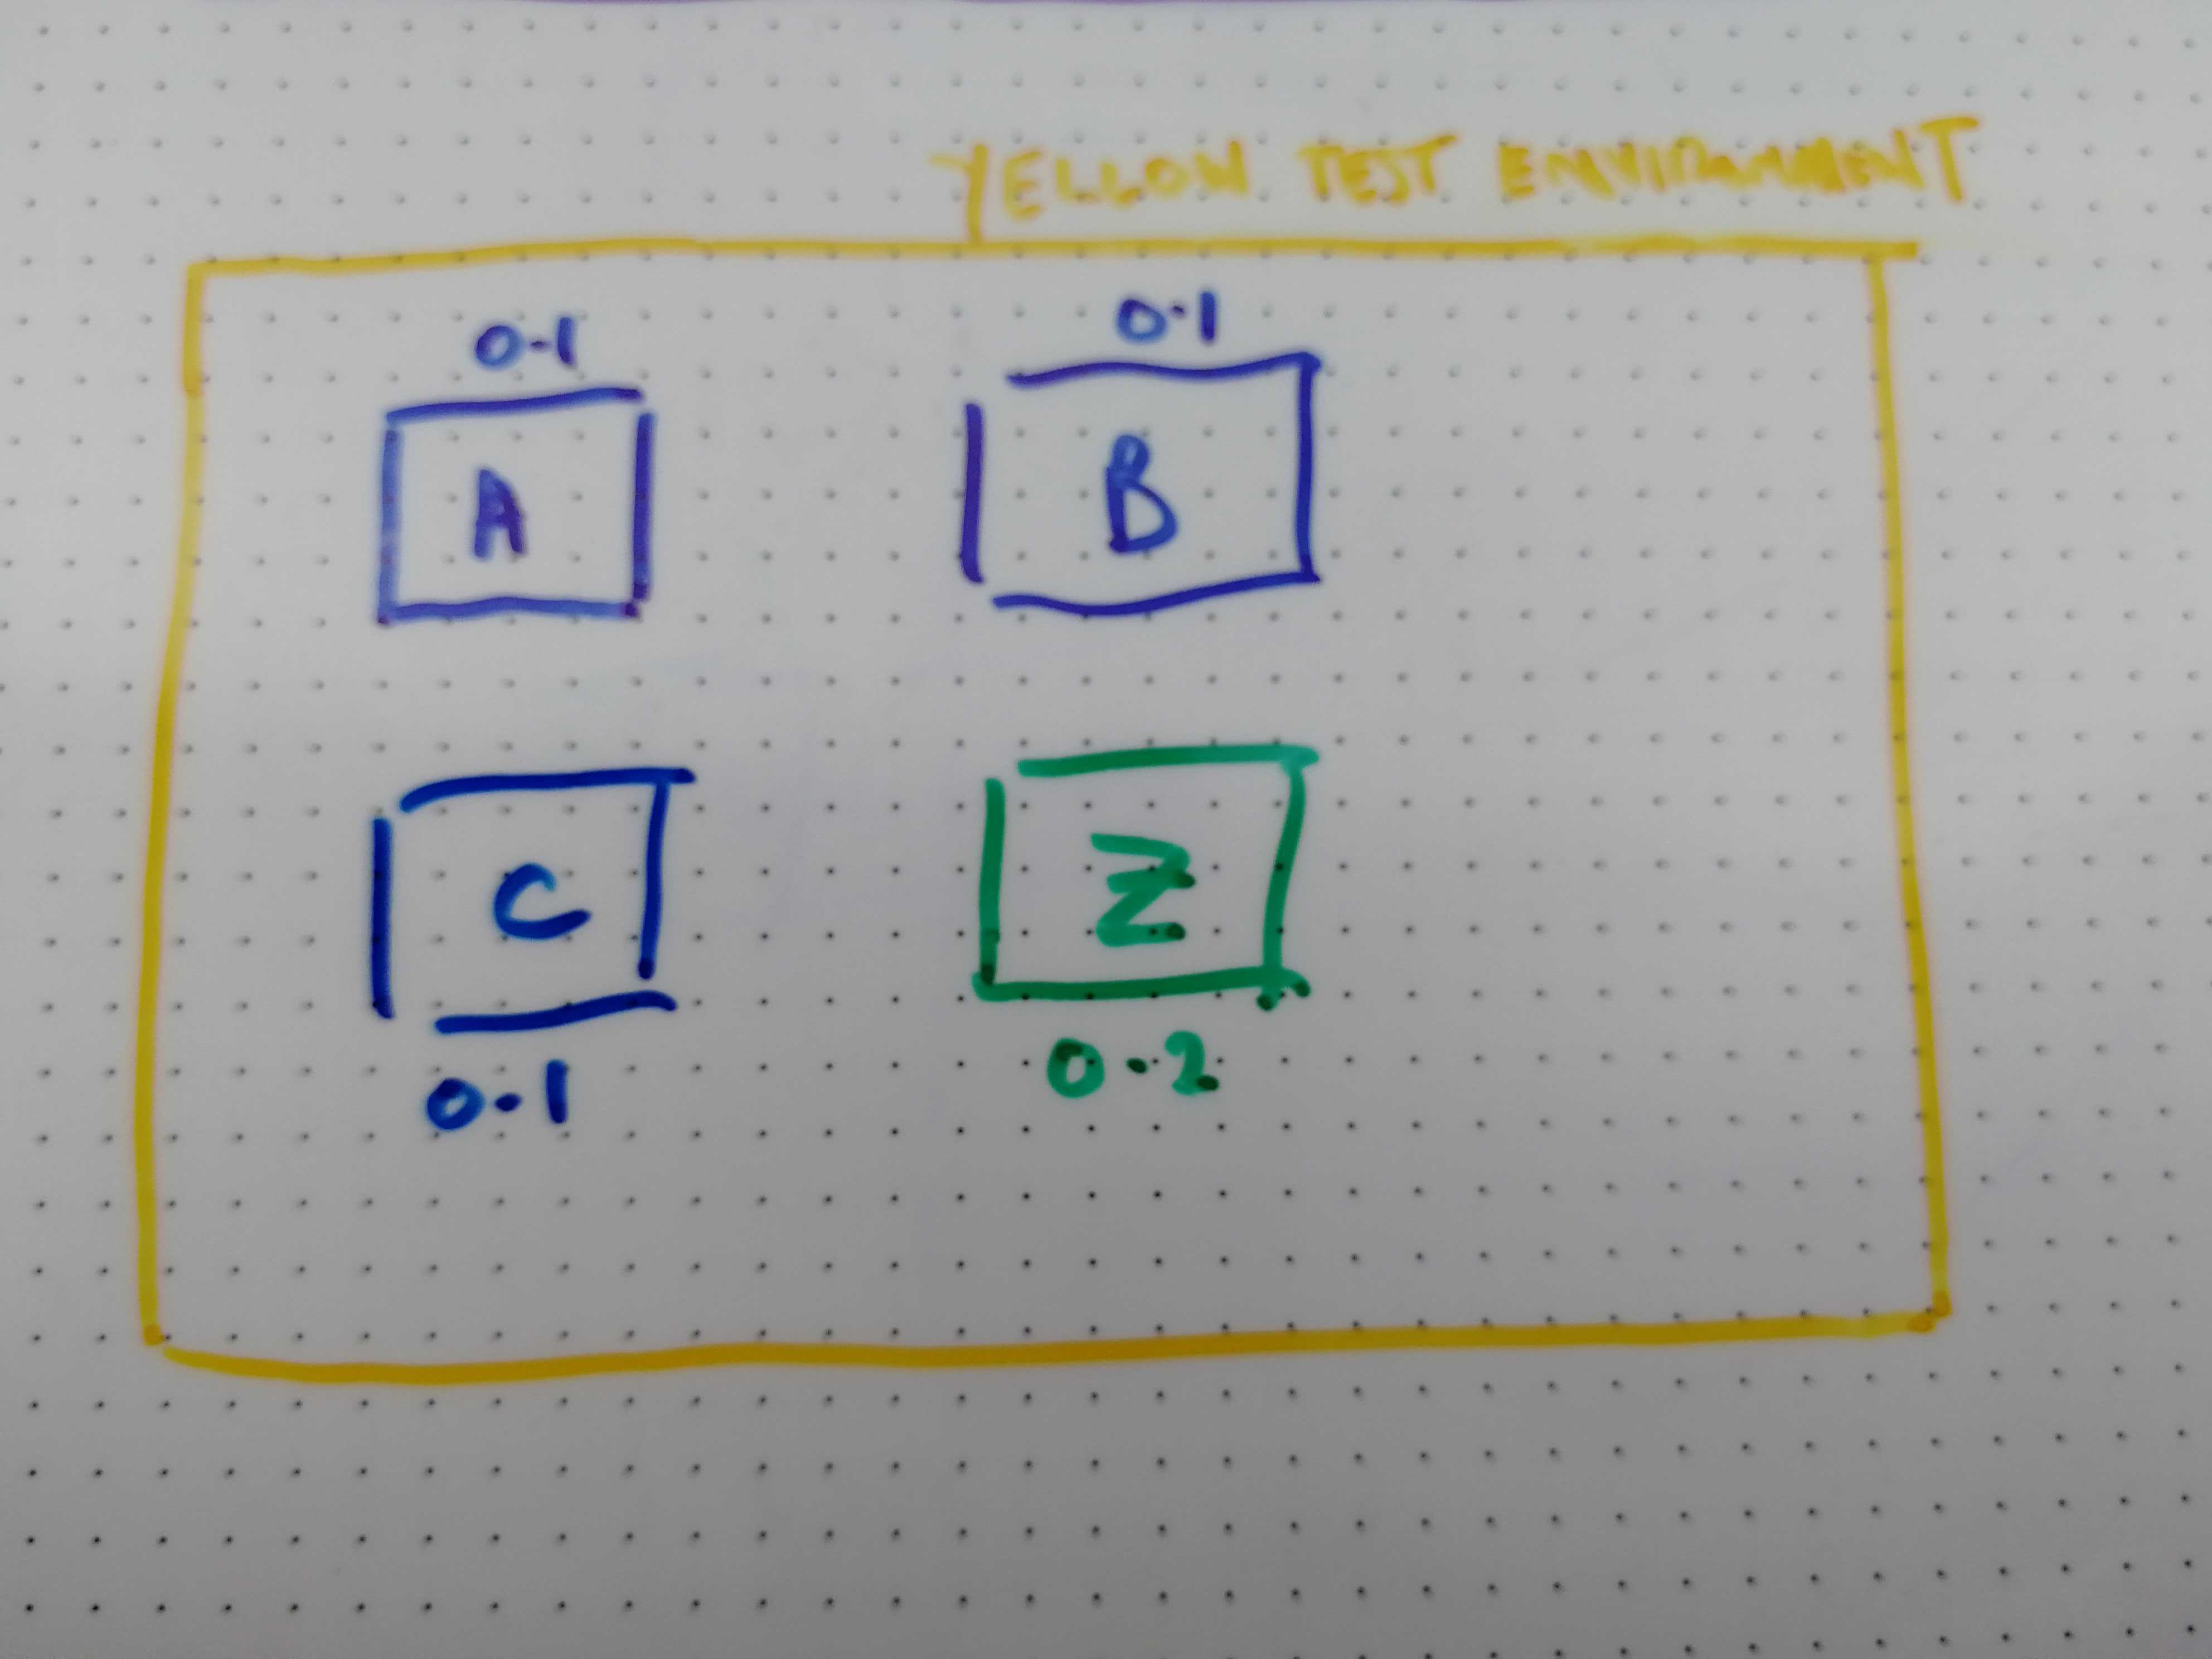 YELLOW TEST ENVIRONMENT
0.1
0.1
A
B
C
Z
0.1
0.2